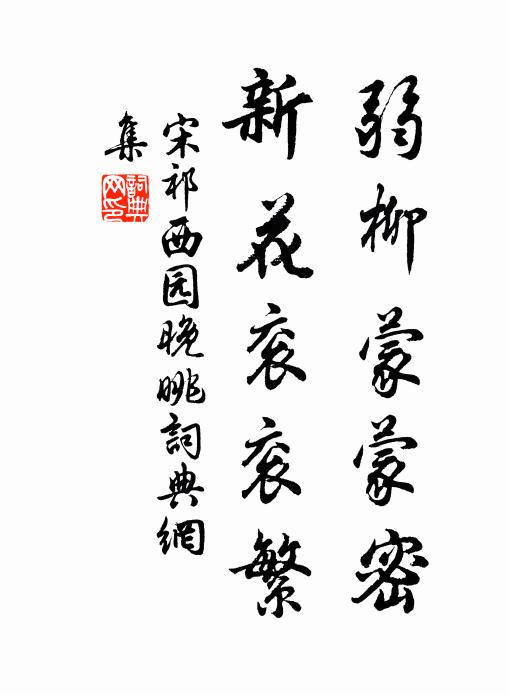 弱柳蒙蒙密
新花衮衮繁
宋祁西园晚眺詞典網
集
詞典
网印